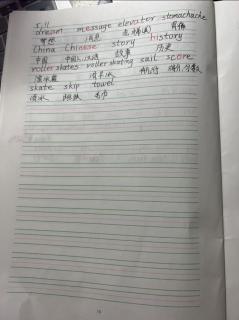 5.11
dream message elevator stomachache
梦想 消息 电梯 胃痛
China Chinese story history
中国 故事 历史
roller skates roller skating sail score
滚冰鞋 滚旱冰 航行
skate skip towel
滑冰 跳跃 毛巾